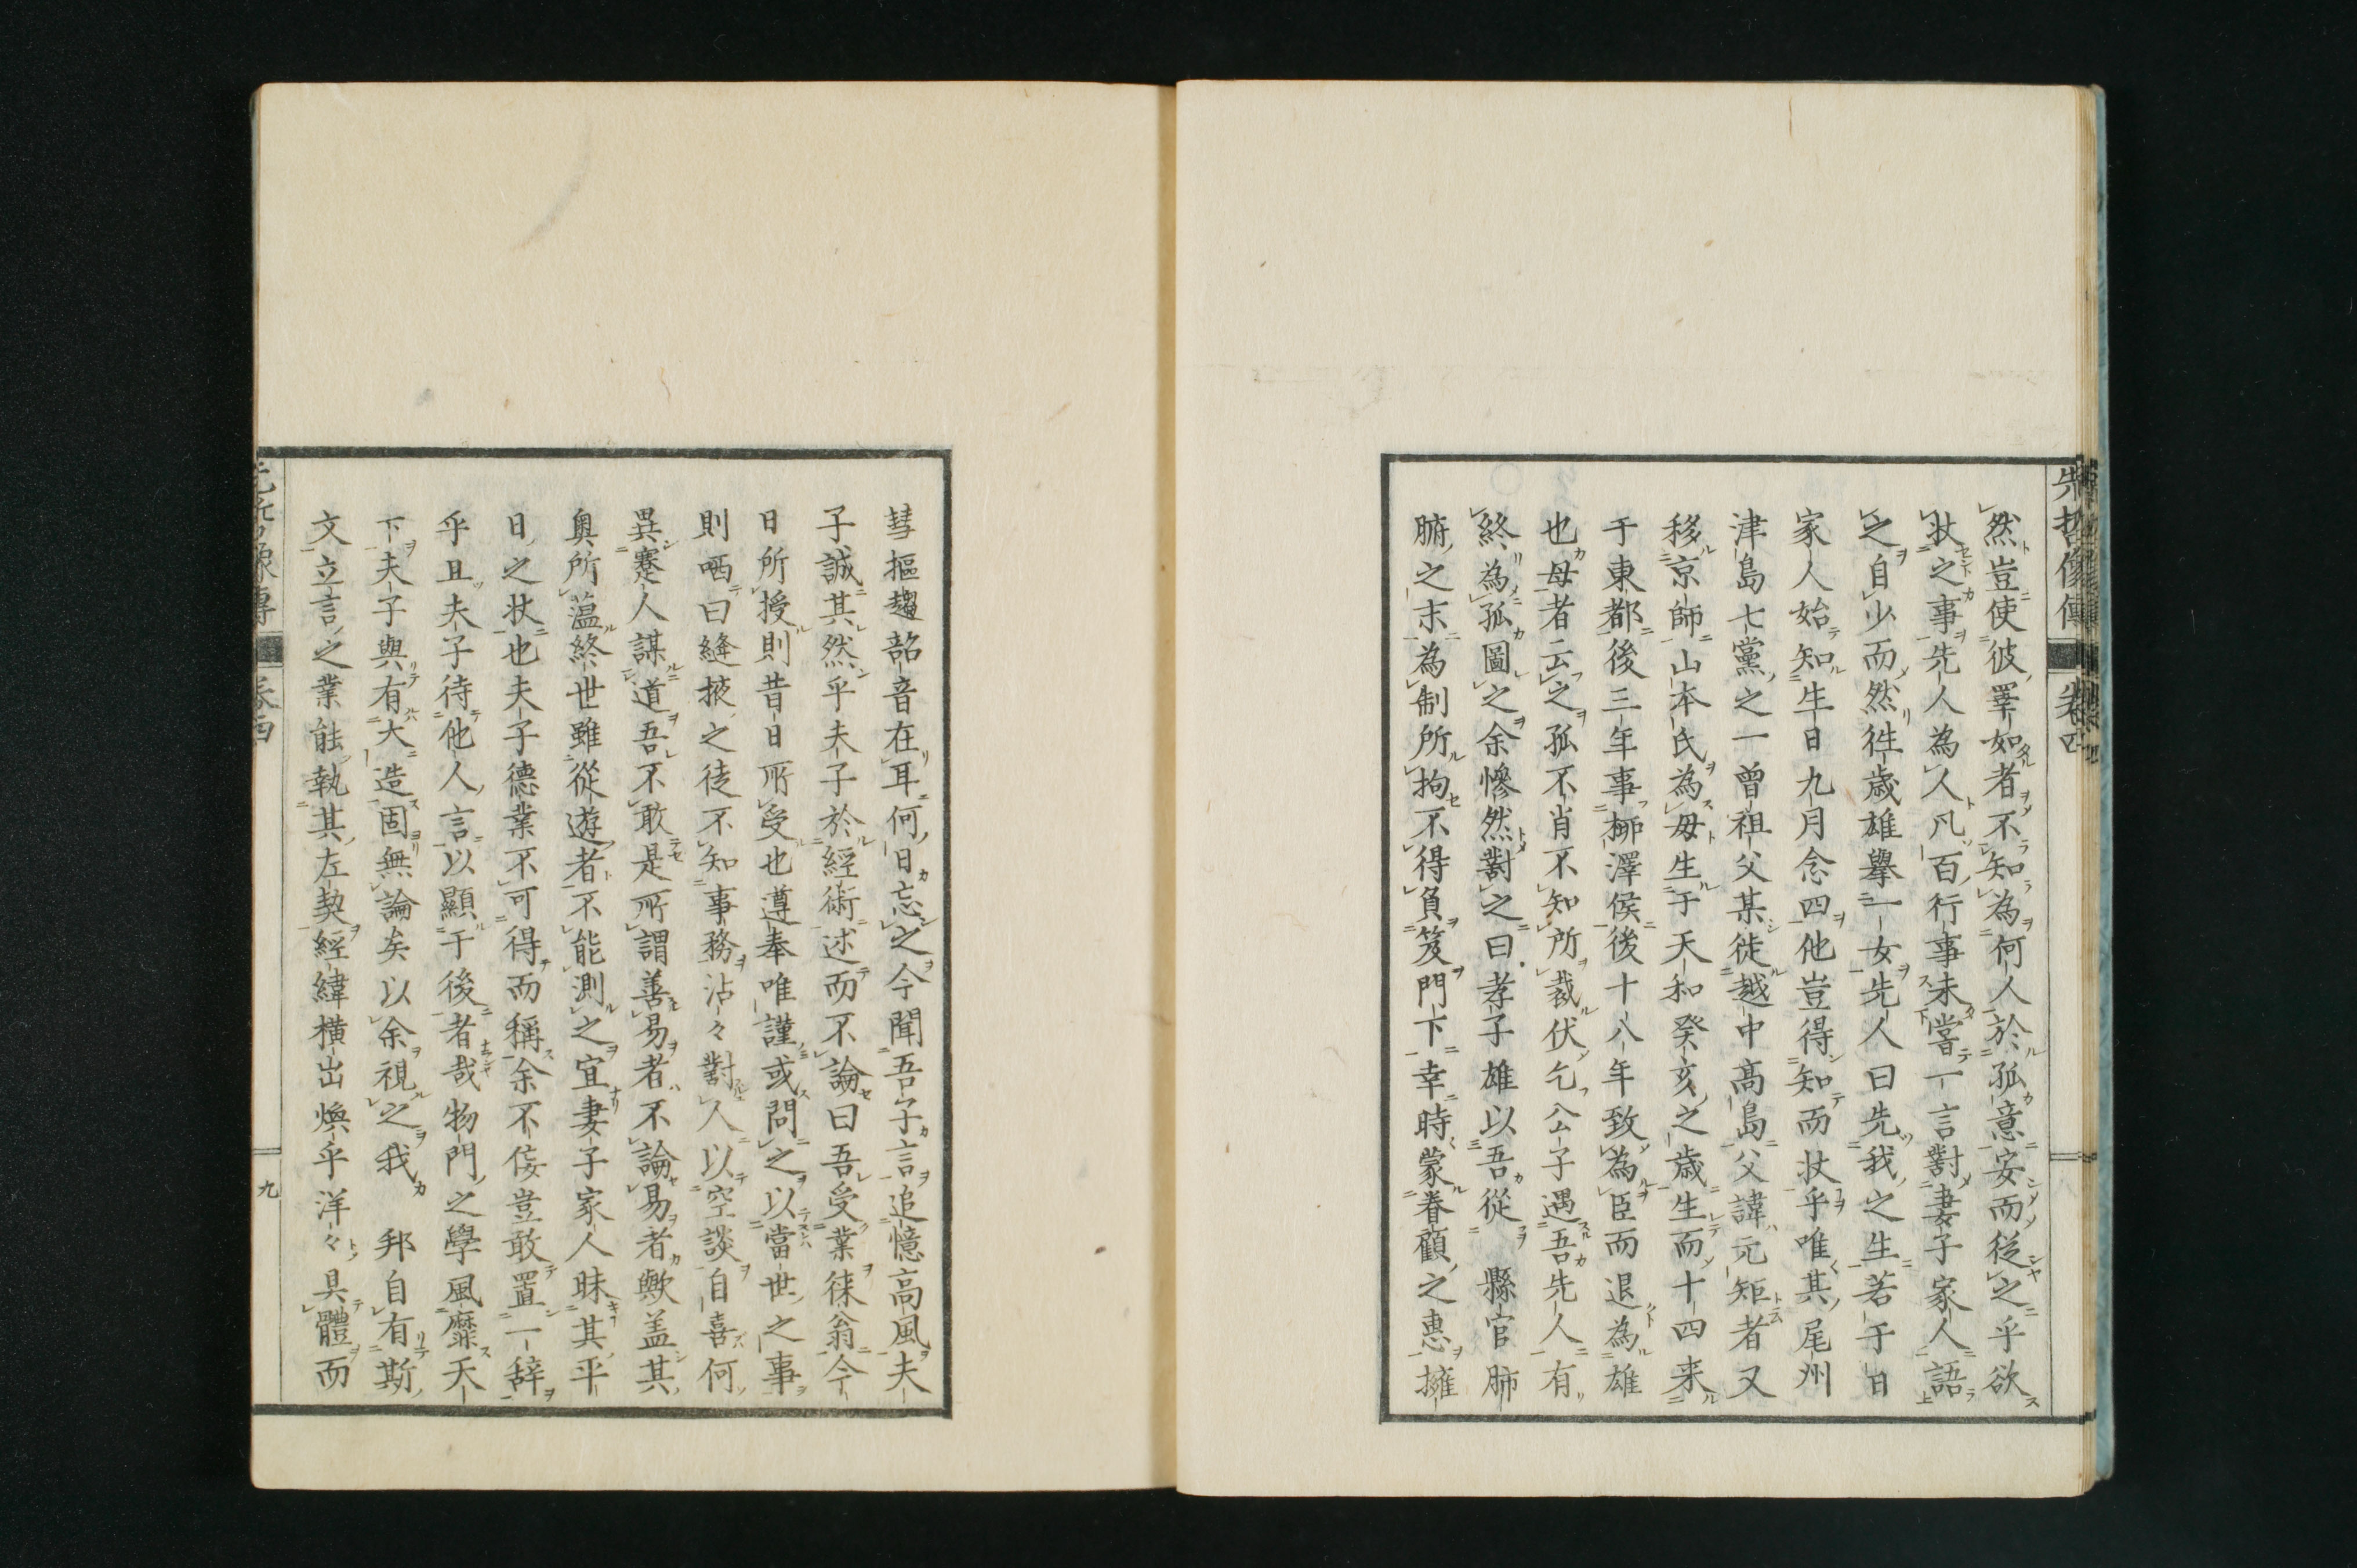 先哲像傳　卷四
然豈使彼睪如者不知為何人於孤意安而從之乎欲
狀之事先人為人凡百行事未嘗一言對妻子家人語
之自少而然徃歳雄擧一女先人曰先我之生若干日
家人始知生日九月念四他豈得知而狀乎唯其尾州
津島七黨之一曾祖父某徙越中髙島父諱元矩者又
移京師山本氏為母生于天和癸亥之歳生而十四来
于東都後三年事桺澤侯後十八年致為臣而退為雄
也母者云之孤不肖不知所裁伏乞公子遇吾先人有
終為孤圖之余慘然對之曰孝子雄以吾從　縣官肺
腑之末為制所拘不得負笈門下幸時蒙眷顧之惠擁
彗摳趨韶音在耳何日忘之今聞吾子言追憶高風夫
子誠其然乎夫子於經術述而不論曰吾受業徠翁今
日所授則昔日所受也遵奉唯謹或問之以當世之事
則哂曰縫掖之徒不知事務沾々對人以空談自喜何
異蹇人謀道吾不敢是所謂善易者不論易者歟盖其
奥所薀終世雖從遊者不能測之宜妻子家人昧其平
日之狀也夫子德業不可得而稱余不佞豈敢置一辞
乎且夫子待他人言以顯于後者哉物門之學風靡天
下夫子與有大造固無論矣以余視之我　邦自有斯
文立言之業能執其左契經緯横出煥乎洋々具體而
先哲像傳　卷四　九